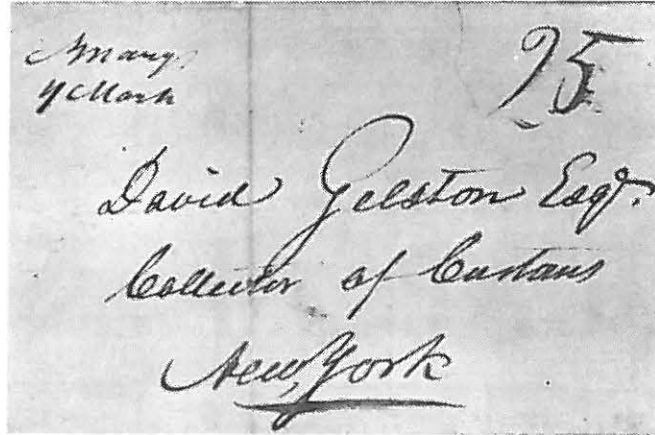 4 March
25
David Gelston Esqr.
Collector of Customs
New York